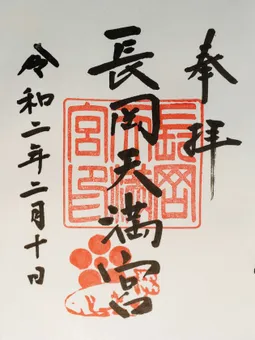 奉拝
長岡天満宮
令和二年二月十日
長岡天満宮印